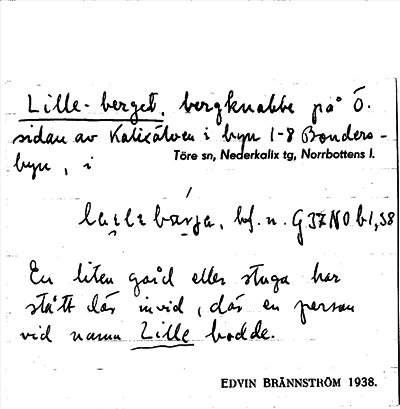 Lille-berget, bergknabbe på Ö.
sidan av Kalixälven i byn 1-8 Bonders-
byn, i
Töre sn, Nederkalix tg, Norrbottens l.
bärja, bf. n.
En liten gård eller stuga har
stått där invid, där en person
vid namn Lille bodde.
EDVIN BRÄNNSTRÖM 1938.